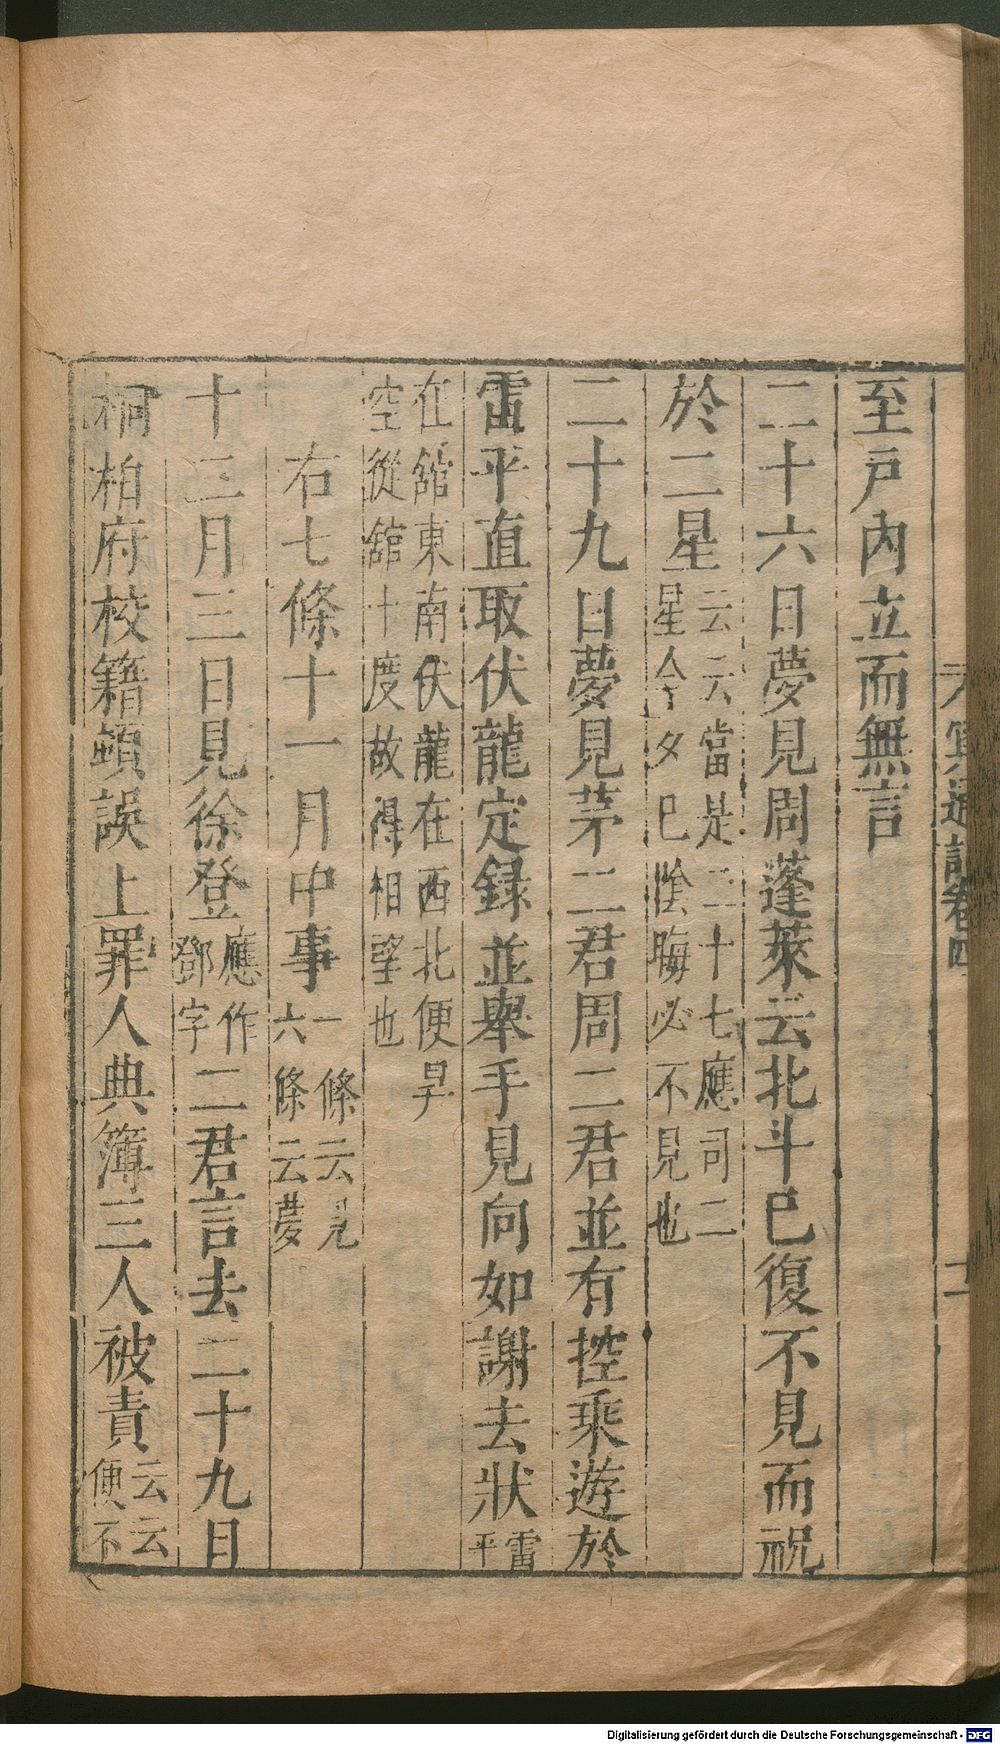 至戸内立而無言
二十六日夢見周蓬萊云北斗巳復不見而祝
於二星云云當是二十七應司二
星今夕巳陰晦必不見也
二十九日夢見茅二君周二君並有控乘遊於
雷平直取伏龍定録並舉手見向如謝去狀雷
平
在舘東南伏龍在西北便早
空從舘十度故得相望也
右七條十一月中事一條云見
六條云夢
十二月三日見徐登應作
鄧字二君言去二十九日
桐柏府校籍頓誤上罪人典簿三人被責云云
便不
通記卷四
Digitalisierung gefördert durch die Deutsche Forschungsgemeinschaft - DFG